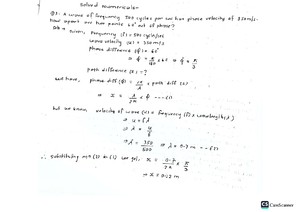 Solved Numericals
Q1: A wave of frequency 500 cycles per sec has phase velocity of 350 m/s.
How apart are two points 60° out of phase?
given, Frequency (f) = 500 cycle/sec
wave velocity (v) = 350 m/s
phase difference (ϕ) = 60°
⇒ ϕ = π/180 × 60 ⇒ ϕ = π/3
path difference (x) = ?
we have, phase diff (ϕ) = 2π/λ × path diff (x)
⇒ x = λ/2π × ϕ --- (1)
but we know, velocity of wave (v) = frequency (f) × wavelength (λ)
⇒ v = fλ
⇒ λ = v/f
⇒ λ = 350/500 ⇒ λ = 0.7 m --- (2)
∴ substituting (2) in (1) we get, x = 0.7/2π × π/3
⇒ x = 0.12 m
CS CamScanner